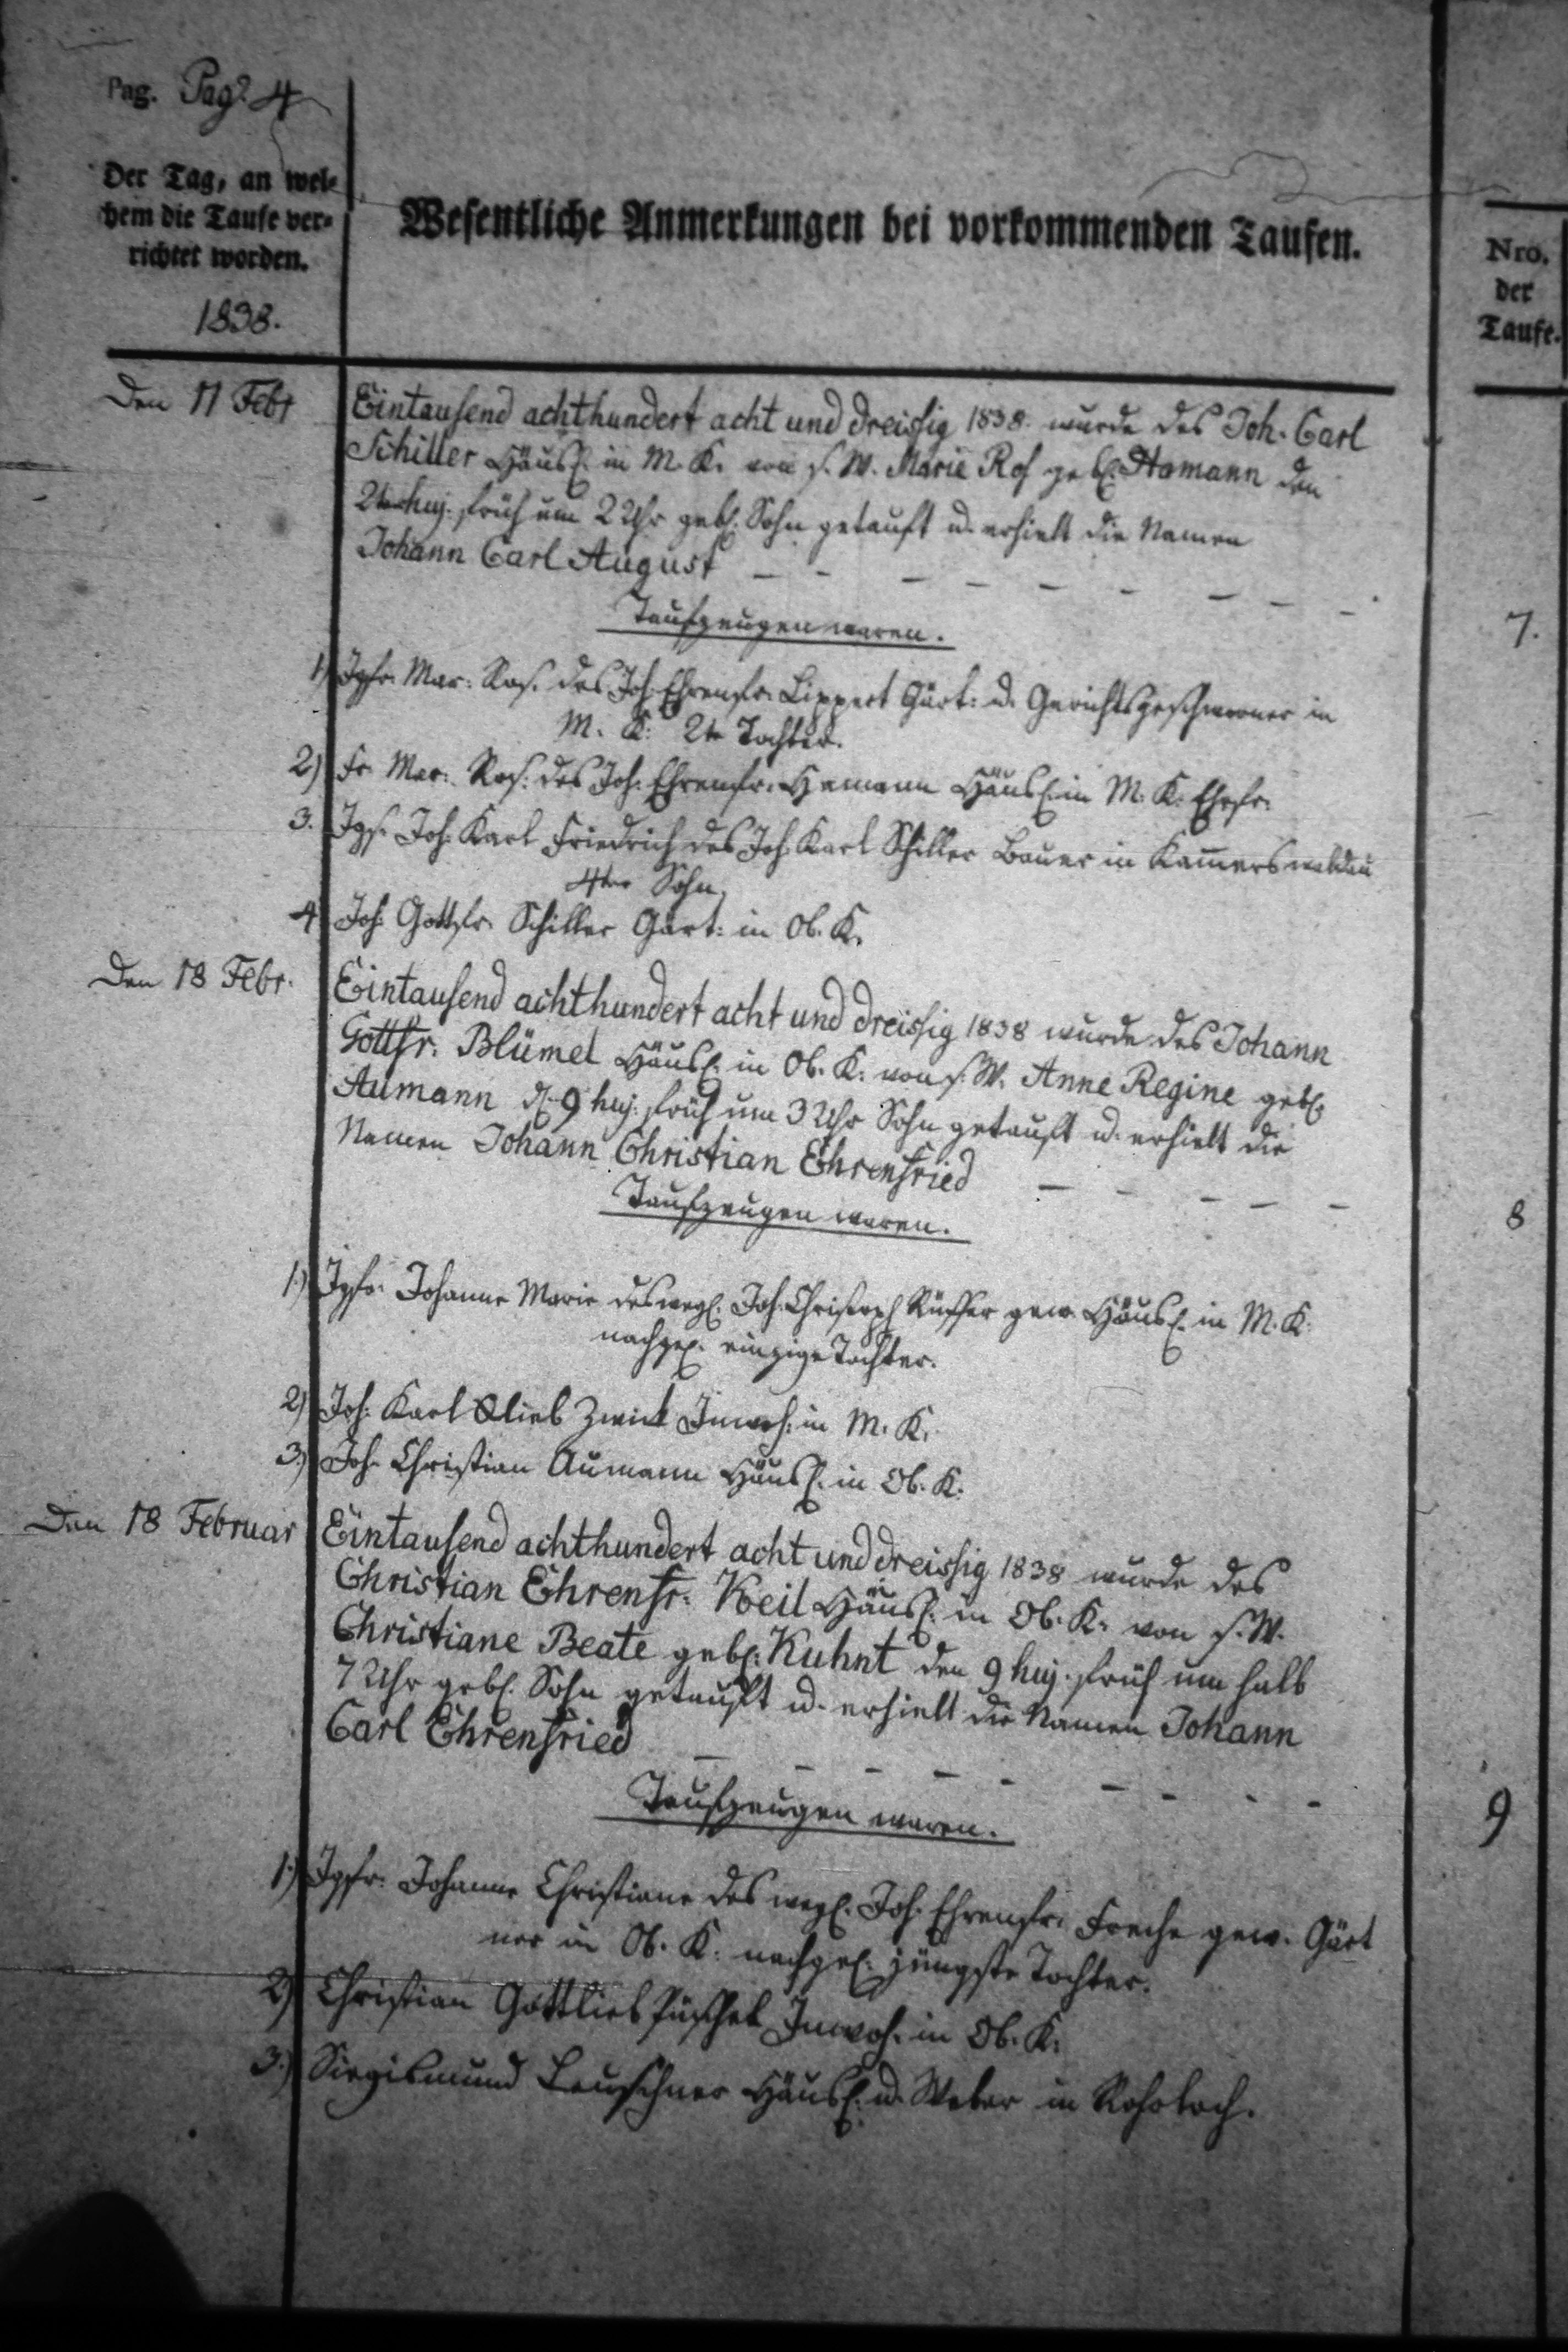 Pag. Pag. 4
Der Tag, an wel-
chem die Taufe ver-
richtet worden.
1838.
Wesentliche Anmerkungen bei vorkommenden Taufen.
Nro.
der
Taufe.
Den 11 Febr
Eintausend achthundert acht und dreissig 1838. wurde des Joh. Carl
Schiller Häusl. in M. K. von s. W. Marie Ros geb. Hamann den
2ten huj. früh um 2 Uhr geb. Sohn getauft u. erhielt die Namen
Johann Carl August
7.
Taufzeugen waren.
1) Jgfr. Mar. Ros. des Joh. Ehrenfr. Lippert Gärt. u. Gerichtsgeschworner in
M. K. 2te Tochter.
2) Fr. Mar. Ros. des Joh. Ehrenfr. Hamann Häusl. in M. K. Ehefr.
3. Jgs. Joh. Karl Friedrich des Joh. Karl Schiller Bauer in Kam̅erswaldau
4ter Sohn.
4 Joh. Gottfr. Schiller Gärt. in Ob. K.
Den 18 Febr.
Eintausend achthundert acht und dreissig 1838 wurde des Johann
Gottfr. Blümel Häusl. in Ob. K. von s. W. Anne Regine geb.
Aumann d. 9 huj. früh um 3 Uhr Sohn getauft u. erhielt die
Namen Johann Christian Ehrenfried
8
Taufzeugen waren.
1.) Jgfr. Johanne Marie des wegl. Joh. Christoph gew. Häusl. in M. K.
nachgel. einzige Tochter.
2) Joh. Karl Zwick Inwoh. in M. K.
3.) Joh. Christian Aumann Häusl. in Ob. K.
Den 18 Februar
Eintausend achthundert acht und dreissig 1838 wurde des
Christian Ehrenfr. Keil Häusl. in Ob. K. von s. W.
Christiane Beate geb. Kuhnt den 9 huj. früh um halb
7 Uhr geb. Sohn getauft u. erhielt die Namen Johann
Carl Ehrenfried
9
Taufzeugen waren.
1.) Jgfr. Johanne Christiane des wegl. Joh. Ehrenfr. Froche gew. Gärt
ner in Ob. K. nachgel. jüngste Tochter.
2) Christian Gottlieb Püschel Inwoh. in Ob. K.
3.) Siegismund Leuschner Häusl. u. Weber in Rohrlach.